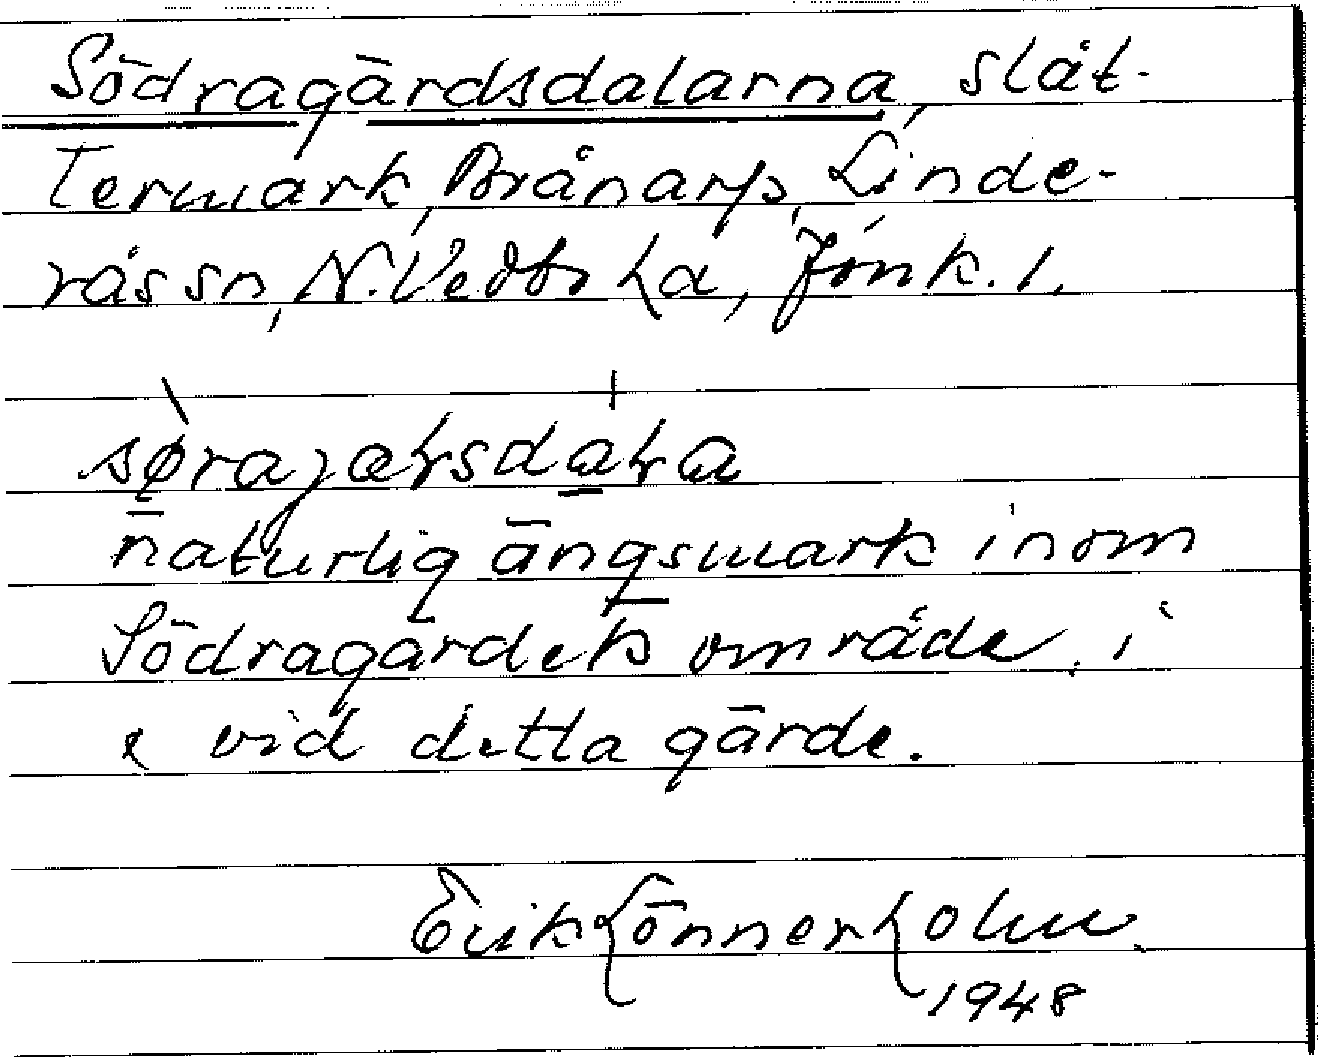 Södragärdsdalarna, slåt-
termark, Brånarp, Linde-
rås sn, N. Vedbo hd, Jönk. l.
naturlig ängsmark inom
Södragärdets område, i
& vid detta gärde.
Erik Lönnerholm
1948